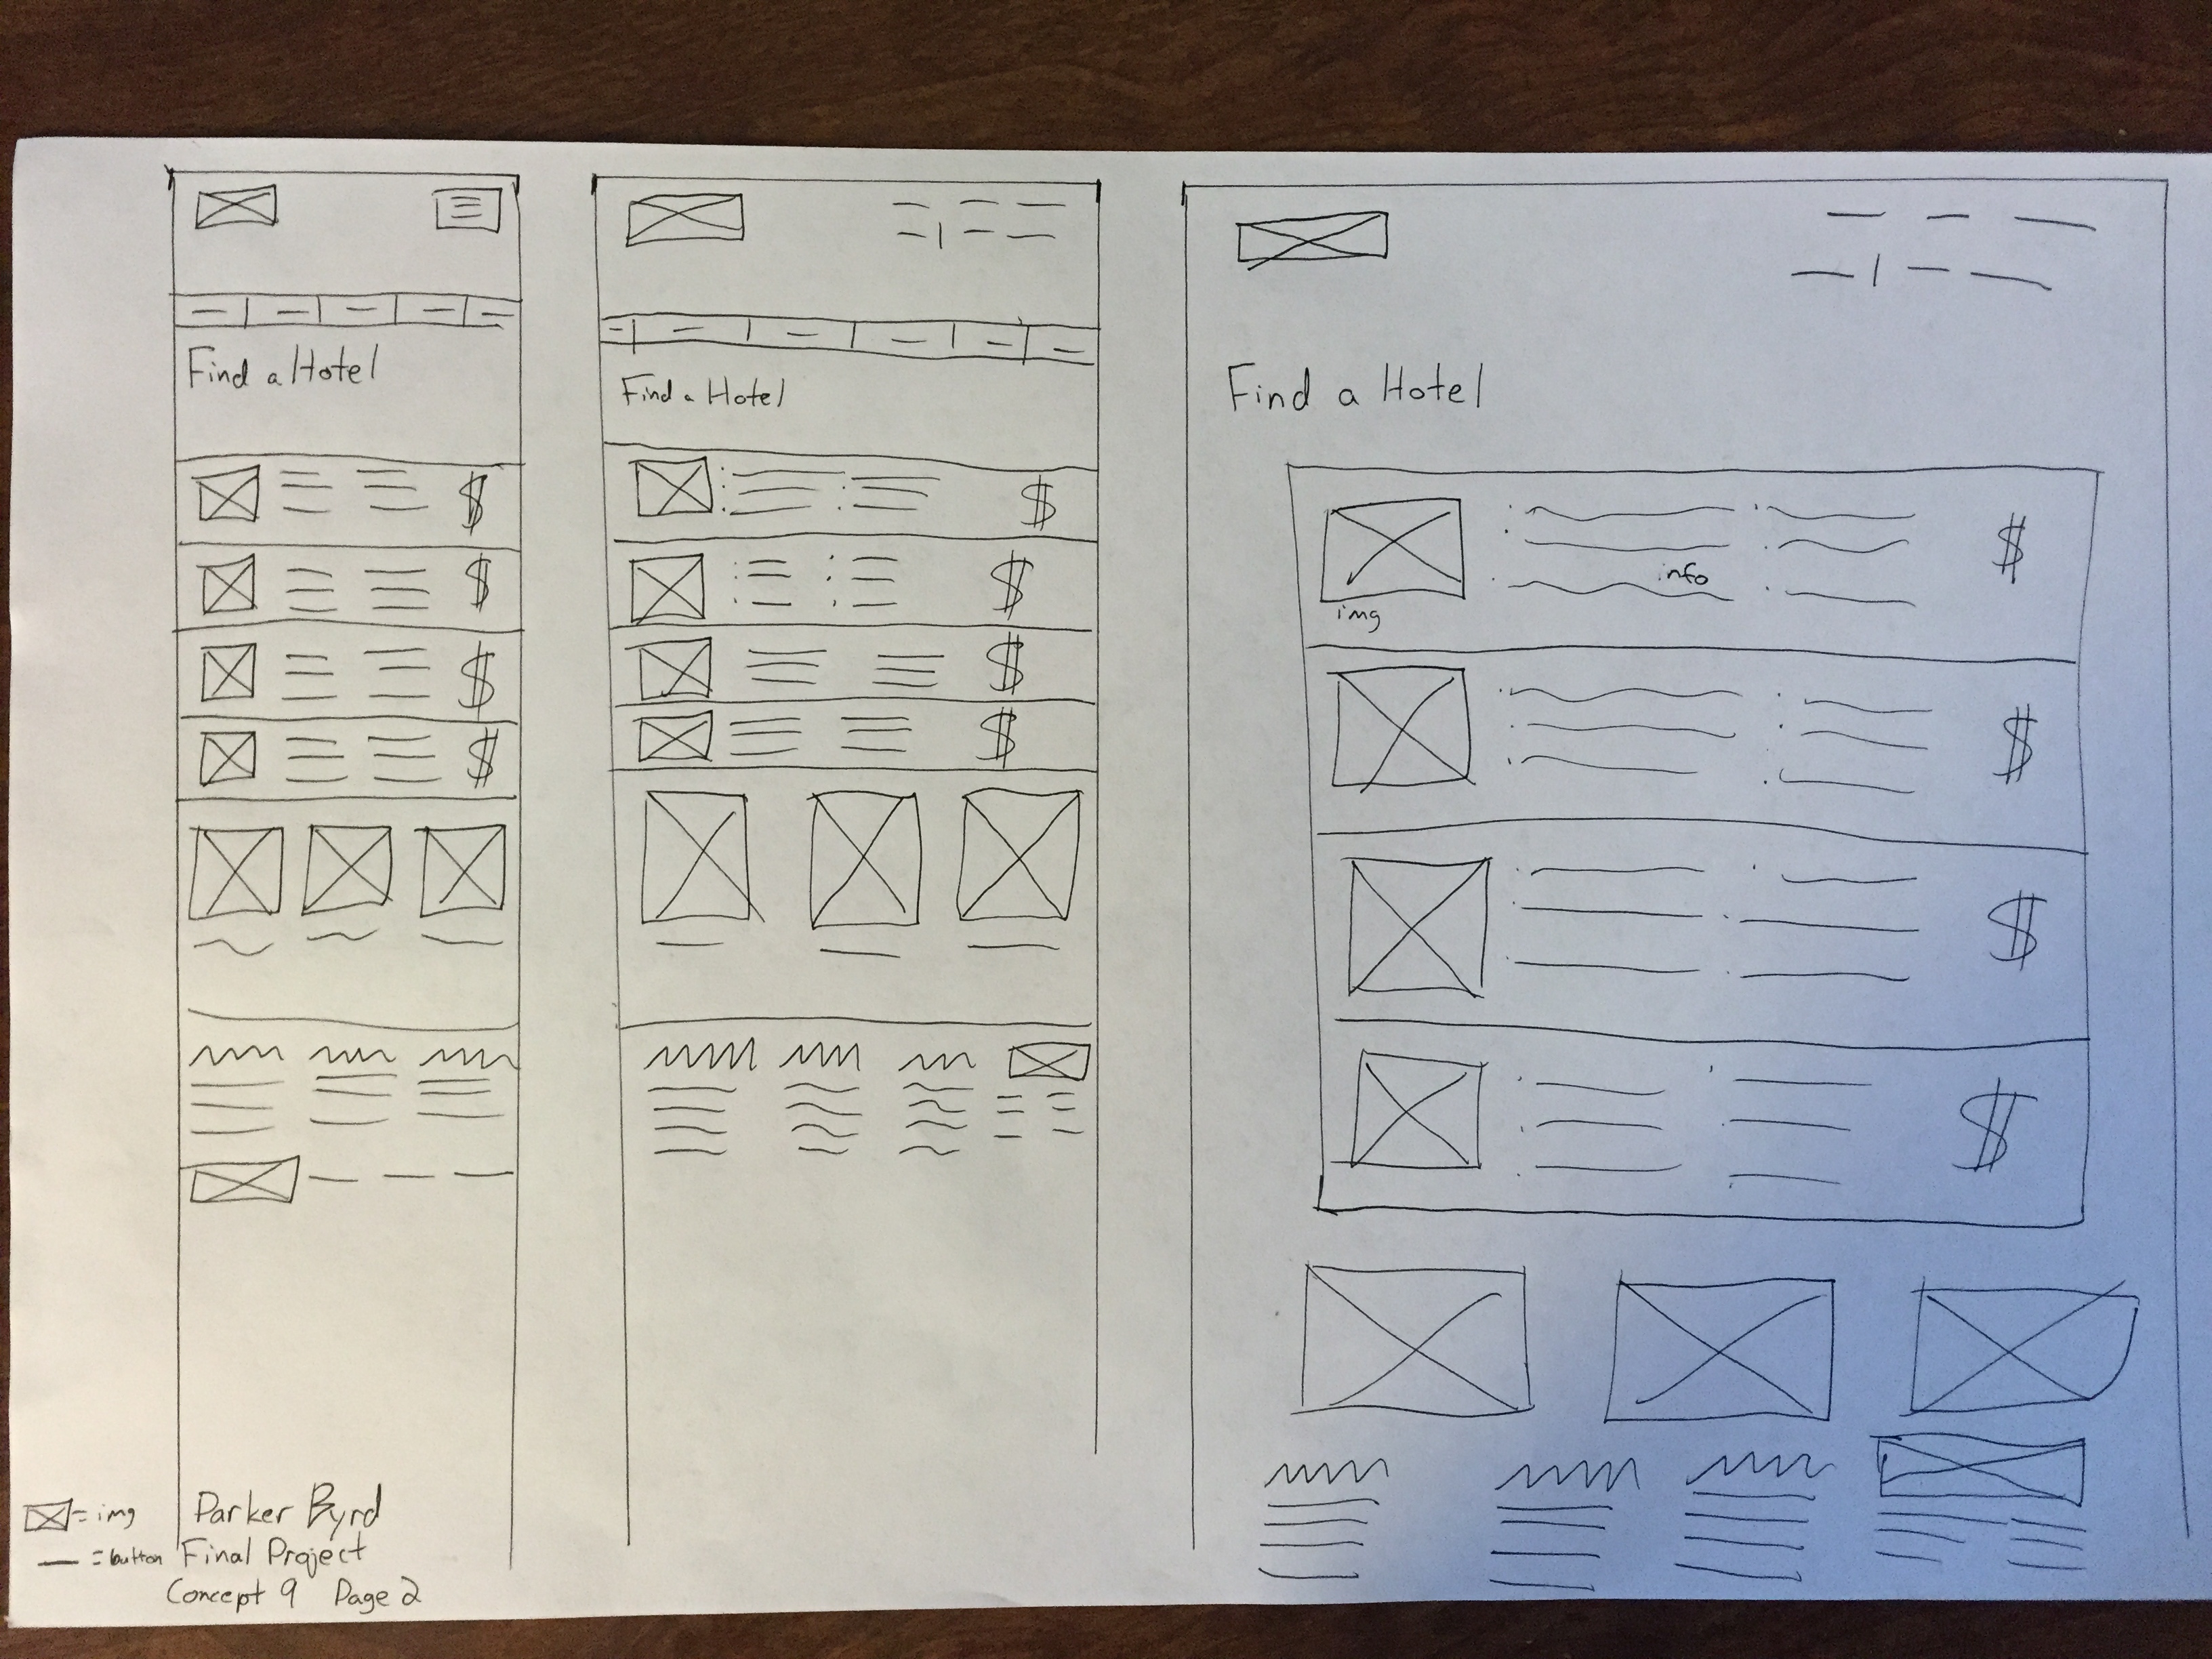 Find a Hotel
$
$
$
$
Find a Hotel
$
$
$
$
Find a Hotel
$
info
img
$
$
$
= img
= button
Parker Byrd
Final Project
Concept 9 Page 2